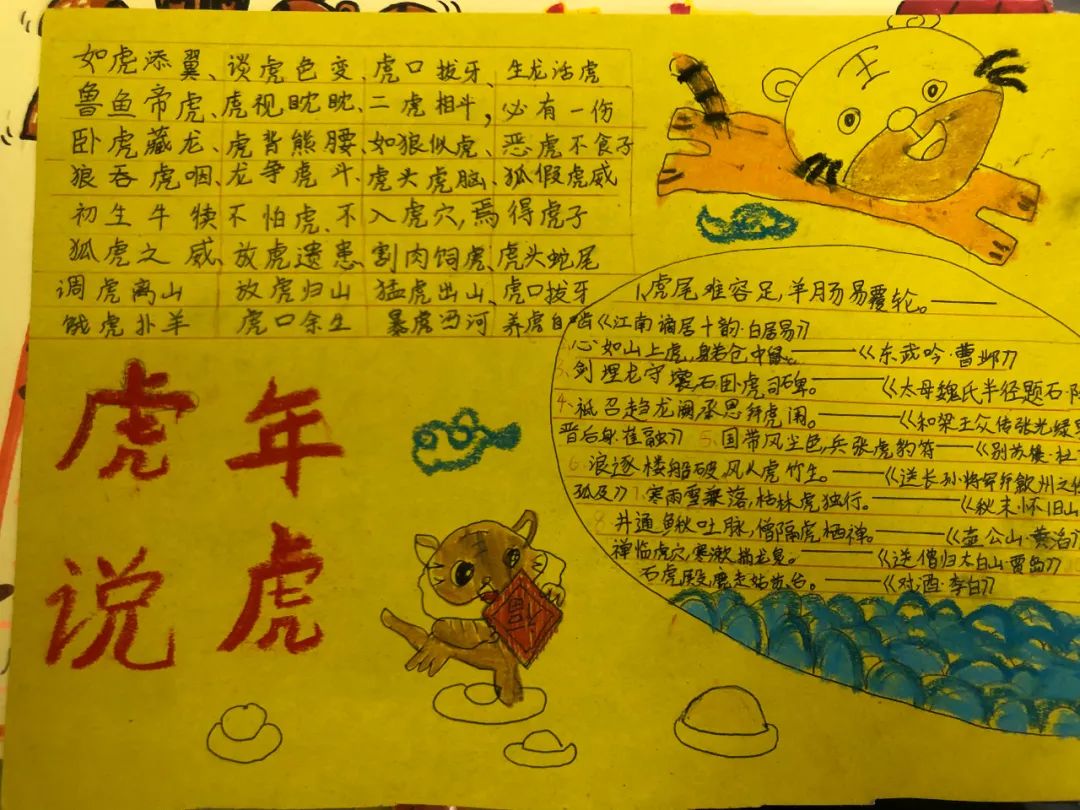 如虎添翼、谈虎色变、虎口拔牙、生龙活虎
鲁鱼帝虎、虎视眈眈、二虎相斗，必有一伤
卧虎藏龙、虎背熊腰、如狼似虎、恶虎不食子
狼吞虎咽、龙争虎斗、虎头虎脑、狐假虎威
初生牛犊不怕虎、不入虎穴，焉得虎子
狐虎之威、放虎遗患、割肉饲虎、虎头蛇尾
调虎离山 放虎归山 猛虎出山、虎口拔牙
饿虎扑羊 虎口余生 暴虎冯河 养虎自
虎年
说虎
王
福
1、虎尾难容足，羊肠易覆轮。——
《江南谪居十韵·白居易》
心如山上虎，身若仓中鼠。——《东武吟·曹邺》
3、剑埋龙守壤石卧虎司碑。——《太母魏氏半径题石·陆
4、祗召趋龙阙承恩拜虎闱。——《和梁王众传张光禄是
晋后身·崔融》 5、国带风尘色，兵张虎豹符——《别苏傒·杜
6、浪逐楼船破，风从虎竹生。——《送长孙将军拜歙州之作
孤及》 7、寒雨雪寨落，枯林虎独行。——《秋末怀旧山
8、井通鳅吐脉，僧隔虎栖禅。——《壶公山·黄滔》
禅临虎穴，寒漱撇龙泉。——《送僧归太白山·贾岛》
石虎殿，鹿走姑苏台。——《对酒·李白》